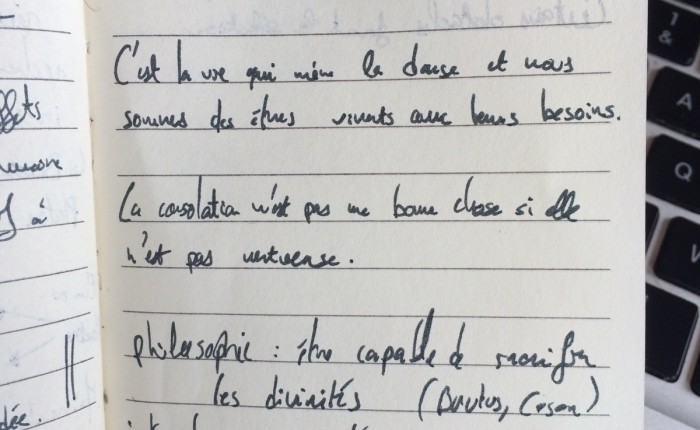 C'est la vie qui mène la danse et nous
sommes des êtres vivants avec leurs besoins.
La consolation n'est pas une bonne chose si elle
n'est pas vertueuse.
philosophie : être capable de sacrifier
les divinités (Brutus, César)
ffets
à
dée.
1
&
A
Q